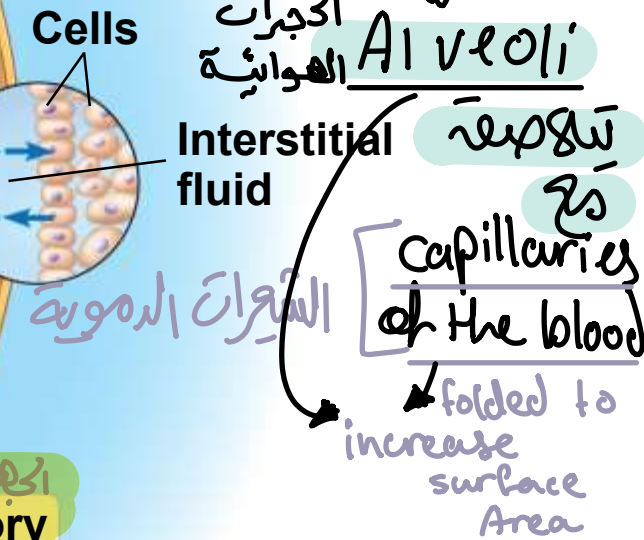 Cells
Interstitial
fluid
الحجرات
الهوائية
Alveoli
مع
capillaries
of the blood
الشعيرات الدموية
folded to
increase
surface
Area
ory